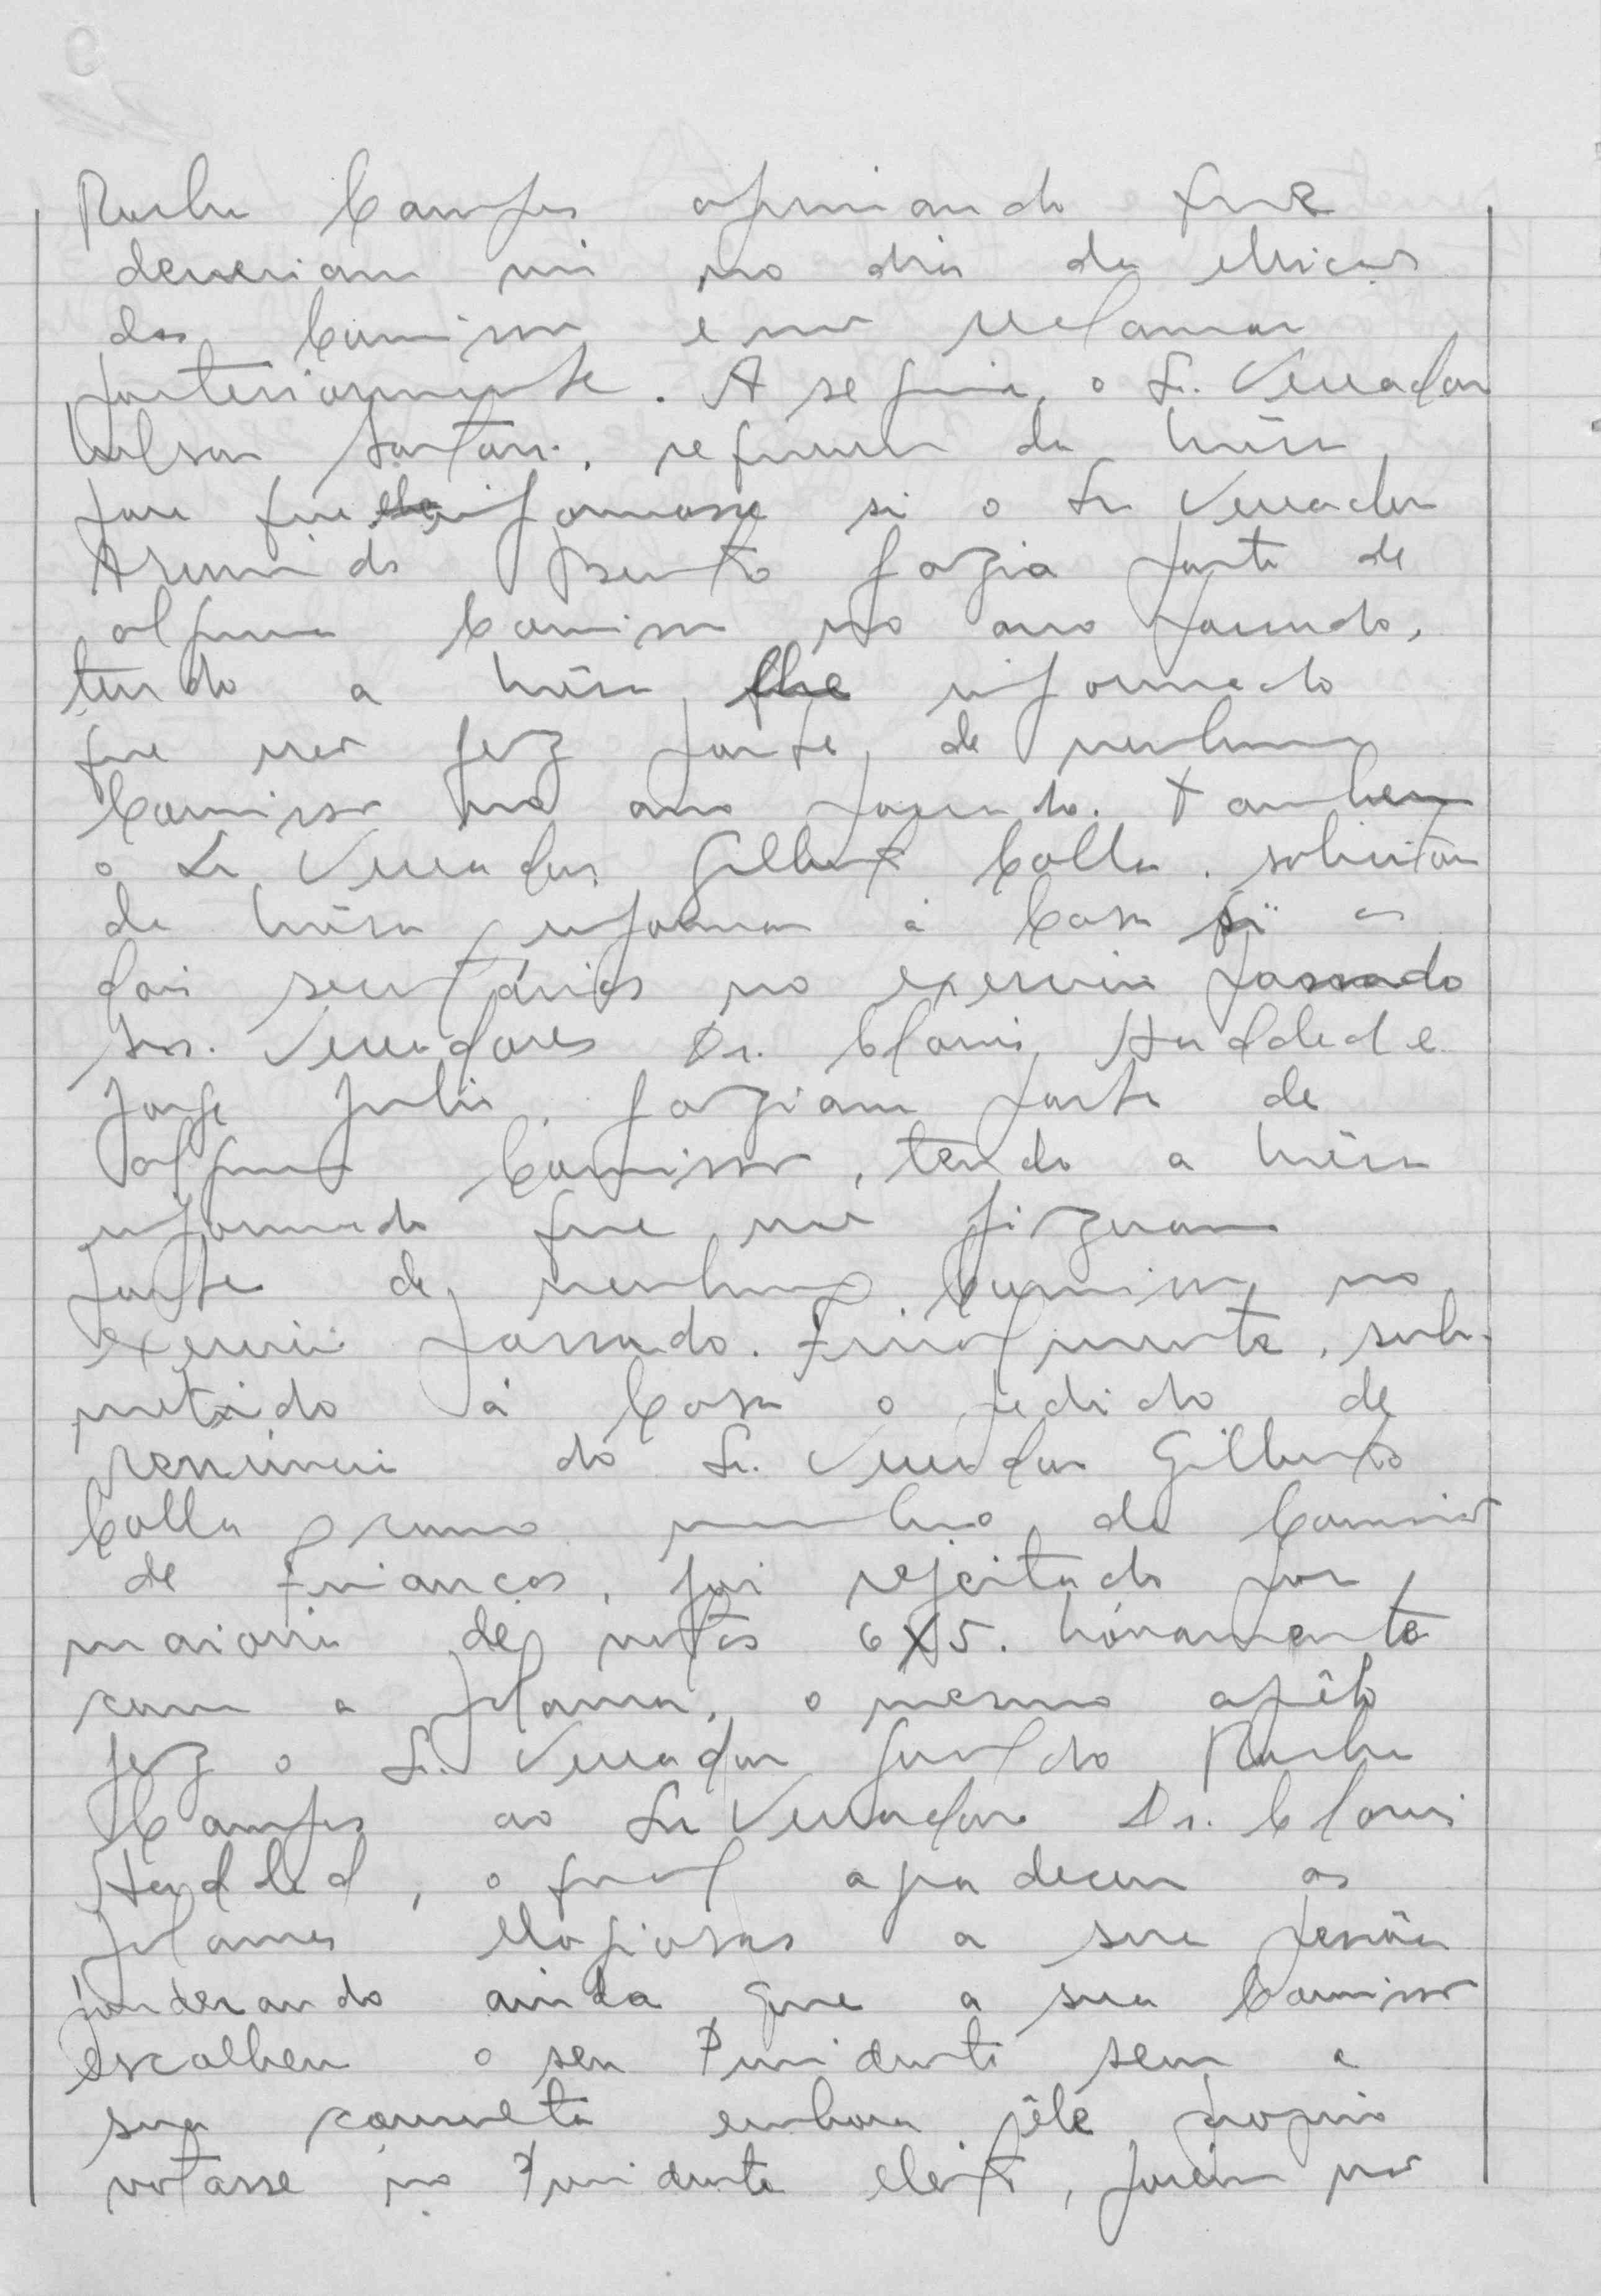 Rocha Campos opinando que
deveriam vir no dia da eleição
das Comissões e não reclamar
posteriormente. A seguir, o Sr. Vereador
Nelson Santani, requereu da Mêsa
para que informasse si o Sr Vereador
Arlindo Bento fazia parte de
alguma Comissão no ano passado,
tendo a Mêsa lhe informado
que não fez parte de nenhuma
Comissão no ano passado. Tambem
o Sr Vereador Gilberto Colla, solicitou
da Mêsa, informar á Casa si os
dois secretários no exercicio passado
Srs. Vereadores Dr. Clovis Haddad e
Jorge Julio, faziam parte de
alguma Comissão, tendo a Mêsa
informado que não fizeram
parte de nenhuma Comissão no
exercicio passado. Finalmente, sub-
metido á Casa o pedido de
renúncia do Sr. Vereador Gilberto
Colla como membro da Comissão
de Finanças, foi rejeitado por
maioria de votos 6x5. Nóvamente
com a palavra, o mesmo apêlo
fez o Sr. Vereador Geraldo Rocha
Campos ao Sr Vereador Dr. Clovis
Haddad, o qual agradeceu as
palavras elogiosas a sua pessôa
ponderando ainda que a sua Comissão
escolheu o seu Presidente sem a
sua consulta embora êle proprio
votasse no Presidente eleito, porém não